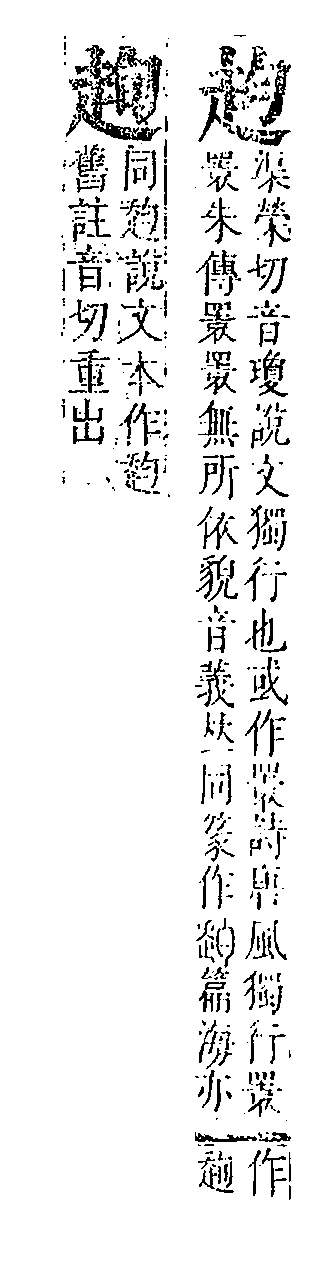 赹
渠榮切音瓊說文獨行也或作睘詩唐風獨行睘
睘朱傳睘睘無所依貌音義𠀤同篆作篇海亦
作
同說文本作
舊註音切重出